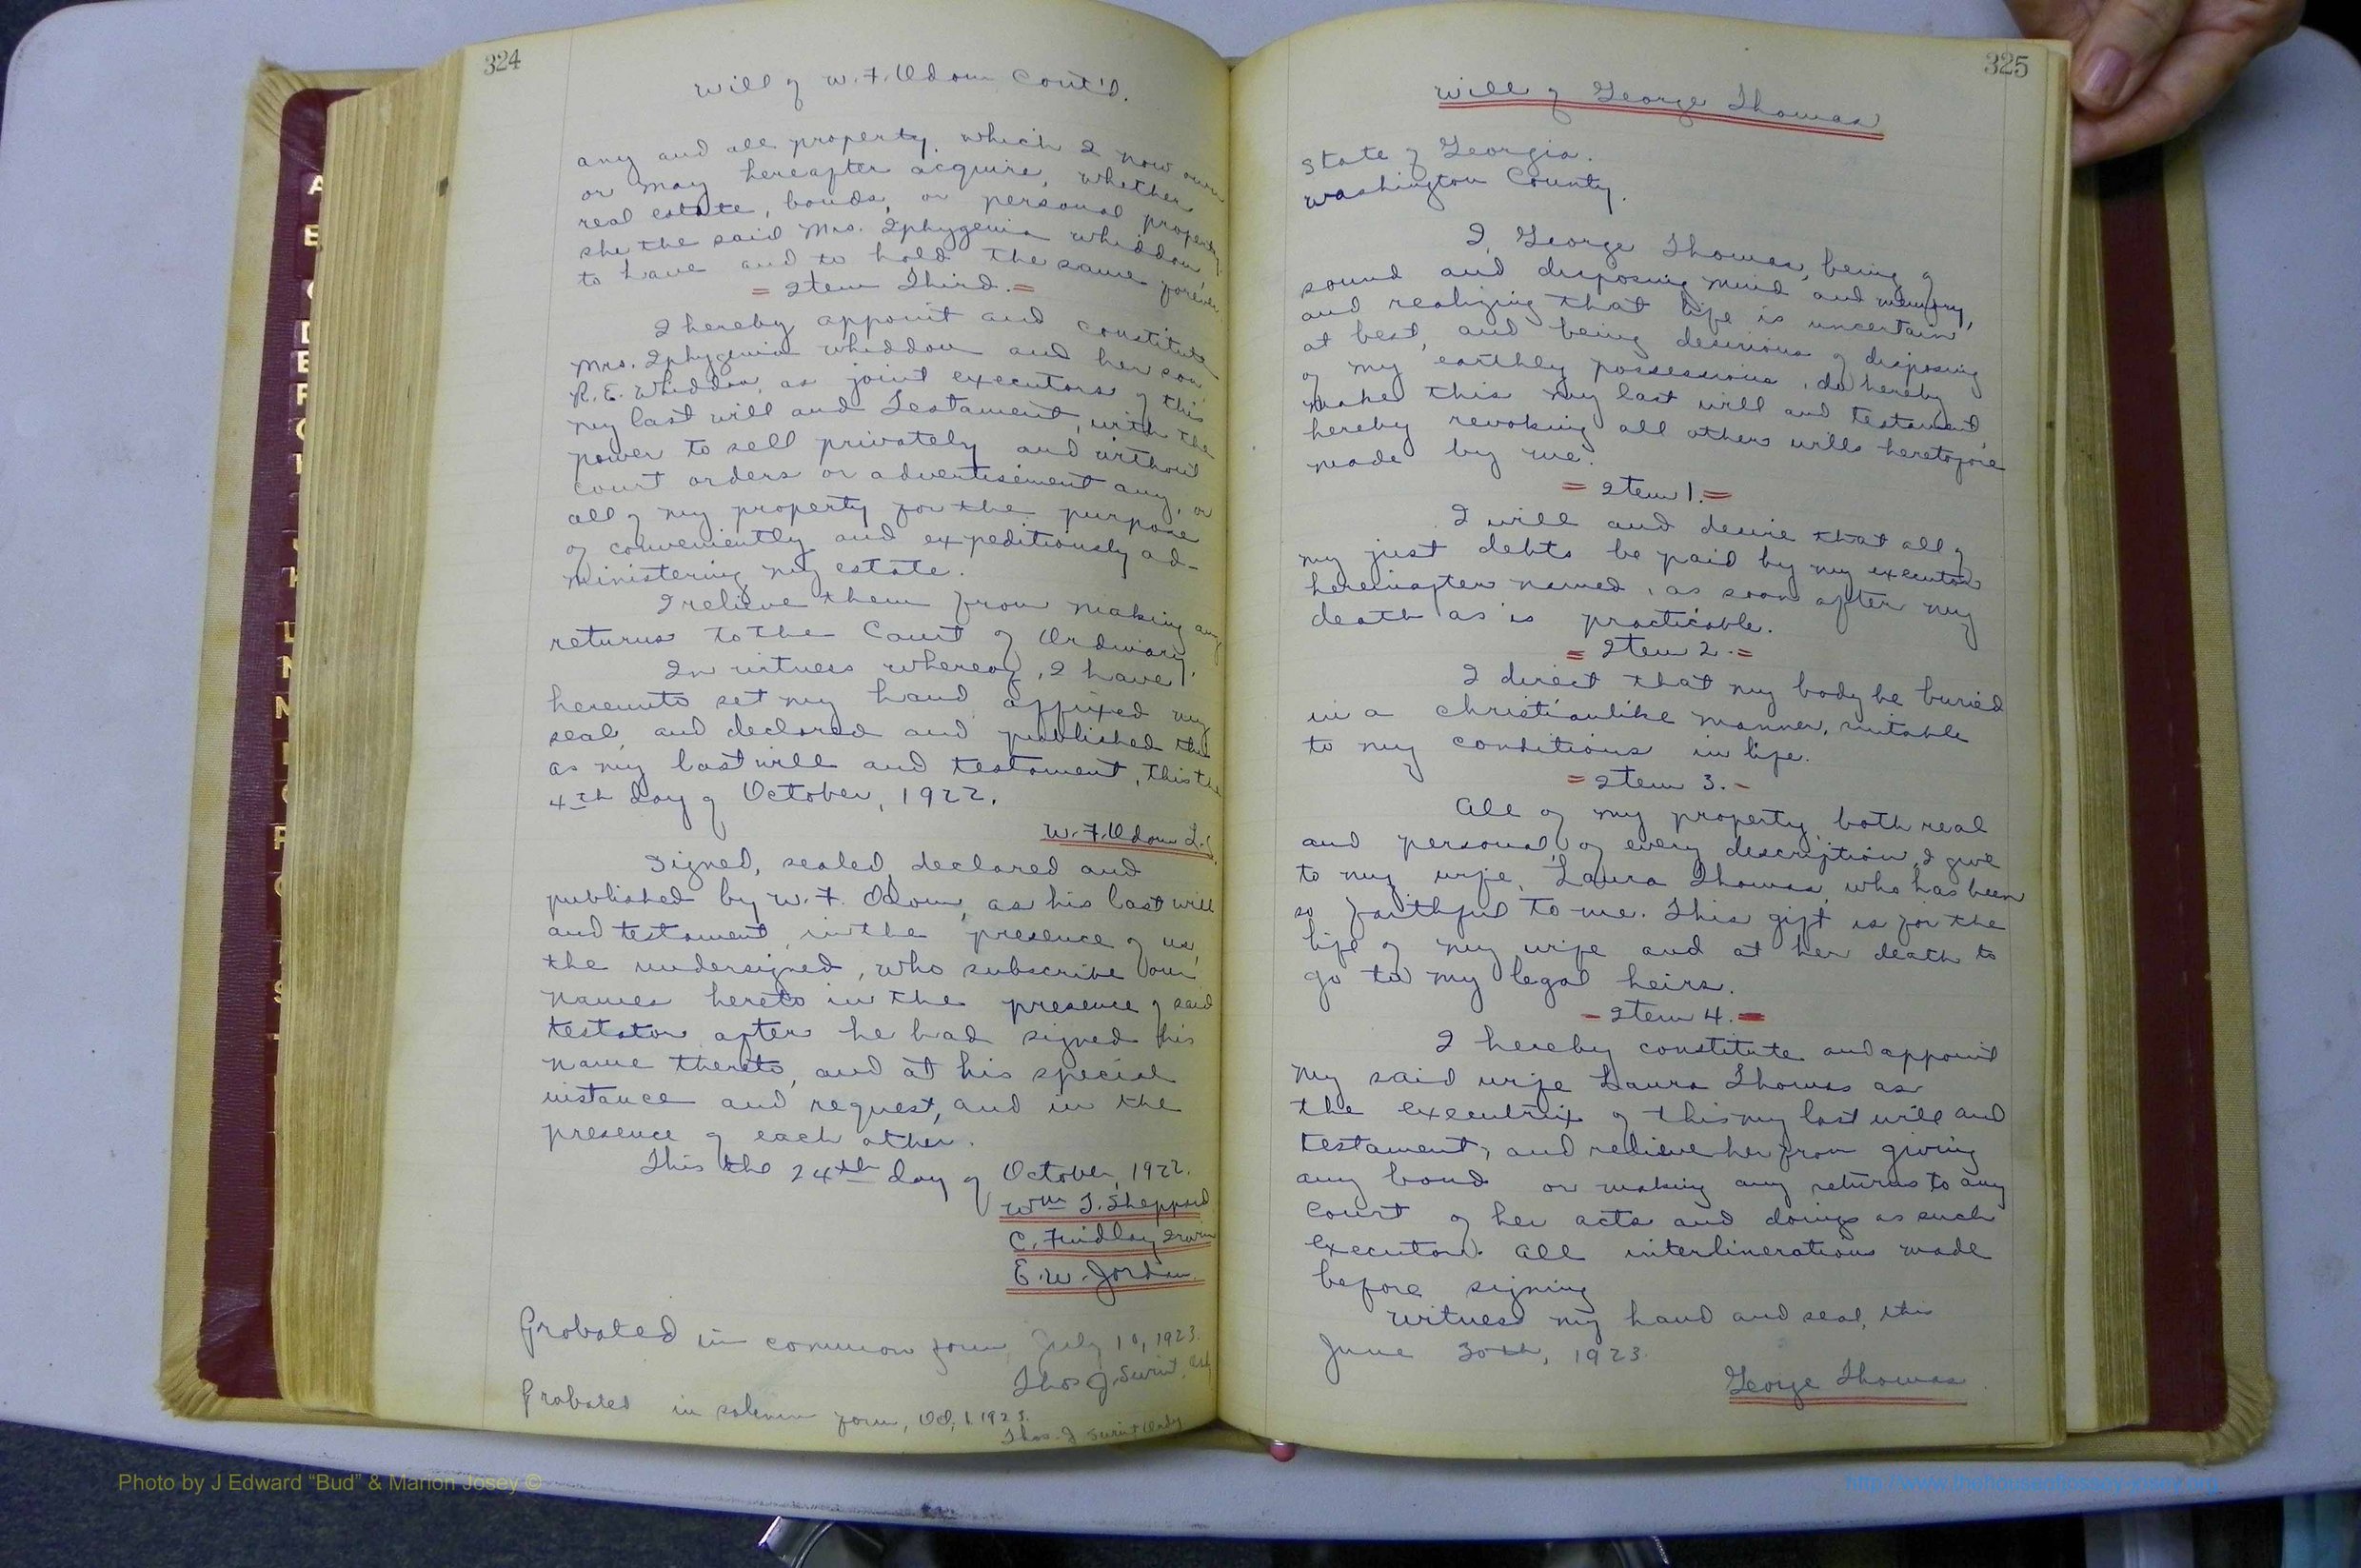 324
Will of W. F. Odom Cont'd.
any and all property, which I now own
or may hereafter acquire, whether
real estate, bonds, or personal property
she the said Mrs. Iphygenia Whiddon,
to have and to hold the same forever.
= Item Third. =
I hereby appoint and constitute
Mrs. Iphygenia Whiddon and her son,
R. E. Whiddon, as joint executors of this
my last will and Testament, with the
power to sell privately and without
court orders or advertisement any, or
all of my property for the purpose
of conveniently and expeditiously ad-
ministering my estate.
I relieve them from making any
returns to the Court of Ordinary.
In witness whereof, I have
hereunto set my hand, affixed my
seal, and declared and published this
as my last will and testament, this the
4th day of October, 1922.
W. F. Odom L.S.
Signed, sealed, declared and
published by W. F. Odom, as his last will
and testament, in the presence of us,
the undersigned, who subscribe our
names hereto in the presence of said
testator after he had signed his
name thereto, and at his special
instance and request, and in the
presence of each other.
This the 24th day of October, 1922.
Wm T. Sheppard
C. Findlay Irwin
E. W. Jordan
Probated in common form, July 10, 1923.
Thos J. Swint, Ord
Probated in solemn form, Oct, 1. 1923.
Thos. J Swint Ordy
325
Will of George Thomas
State of Georgia.
Washington County.
I, George Thomas, being of
sound and disposing mind and memory,
and realizing that life is uncertain
at best, and being desirious of disposing
of my earthly possessions, do hereby
make this my last will and testament,
hereby revoking all others wills heretofore
made by me.
= Item 1. =
I will and desire that all of
my just debts be paid by my executor
hereinafter named, as soon after my
death as is practicable.
= Item 2. =
I direct that my body be buried
in a christianlike manner, suitable
to my conditions in life.
= Item 3. -
All of my property, both real
and personal, of every description, I give
to my wife, Laura Thomas, who has been
so faithful to me. This gift is for the
life of my wife and at her death to
go to my legal heirs.
- Item 4. =
I hereby constitute and appoint
my said wife Laura Thomas as
the executrix of this my last will and
testament, and relieve her from giving
any bond or making any returns to any
Court of her acts and doings as such
executor. All interlinerations made
before signing
Witness my hand and seal, this
June 30th, 1923.
George Thomas
Photo by J Edward “Bud” & Marion Josey ©
http://www.thehouseofjossey-josey.org